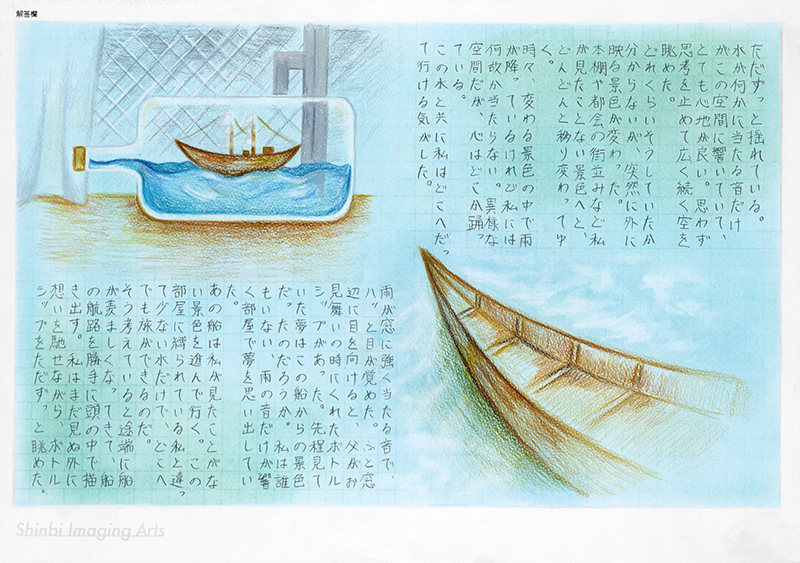 解答欄
ただずっと揺れている。
水が何かに当たる音だけ
がこの空間に響いていて、
とても心地が良い。思わず
思考を止めて広く続く空を
眺めた。
どれくらいそうしていたか
分からないが、突然に外に
映る景色が変わった。
本棚や都会の街並みなど私
が見たことない景色へと、
どんどんと移り変わってゆ
く。
時々、変わる景色の中で雨
が降っているけれど私には
何故か当たらない。異様な
空間だが、心はどこか踊っ
ている。
この水と共に私はどこへだっ
て行ける気がした。
雨が窓に強く当たる音で、
ハッと目が覚めた。ふと窓
辺に目を向けると、父がお
見舞いの時にくれたボトル
シップがあった。先程見て
いた夢はこの船からの景色
だったのだろうか。私は誰
もいない、雨の音だけが響
く部屋で夢を思い出してい
た。
あの船は私が見たことがな
い景色を進んで行く。この
部屋に縛られている私と違っ
て少ない水だけで、どこへ
でも旅ができるのだ。
そう考えていると途端に船
が羨ましくなってきて、船
の航路を勝手に頭の中で描
き出す。私はまだ見ぬ外に
想いを馳せながら、ボトル
シップをただずっと眺めた。
Shinbi Imaging Arts